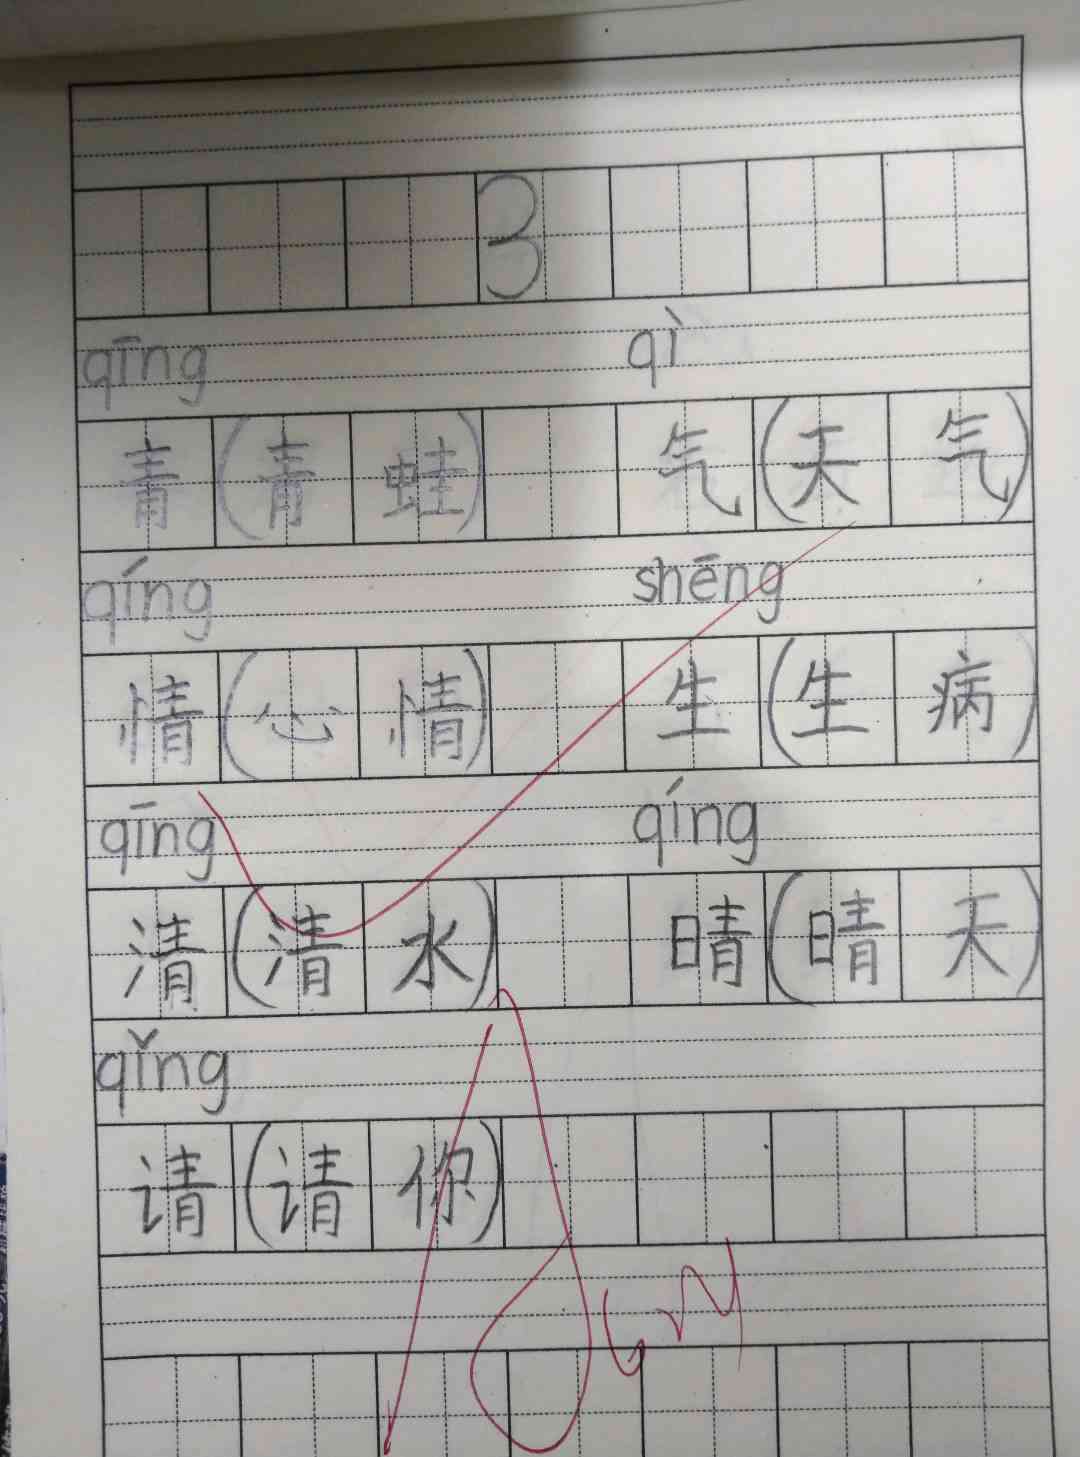 3
qīng qì
青(青蛙) 气(天气)
qíng shēng
情(心情) 生(生病)
qīng qíng
清(清水) 晴(晴天)
qǐng
请(请你)